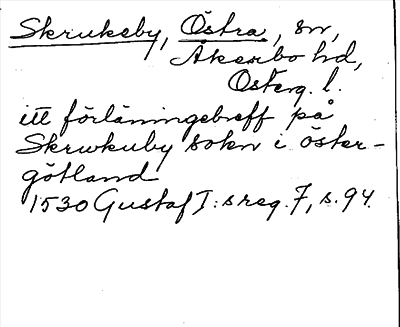 Skrukeby, Östra, sn,
Åkerbo hd,
Österg. l.
itt förläningsbreff på
Skrwkuby sokn i öster-
götland
1530 Gustaf I:s reg. 7, s. 94.